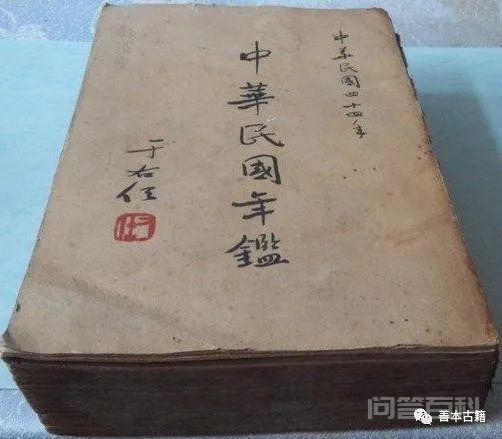 中華民國四十四年
中華民國年鑑
于右任
问答百科
善本古籍